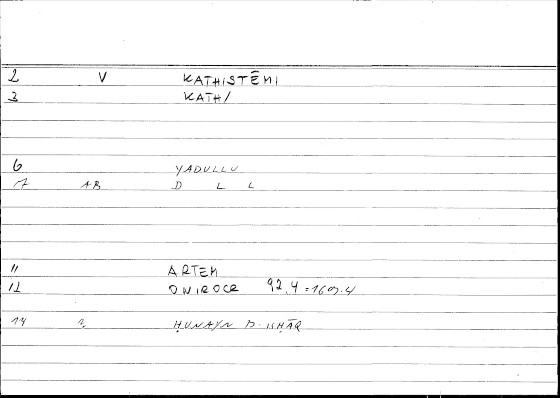 2 V KATHISTĒMI
3 KATH/
6 YADULLU
7 AB D L L
11 ARTEM
12 ONIROCR 92,4 = 160,4
14 2 ḤUNAYN B. ISḤĀQ